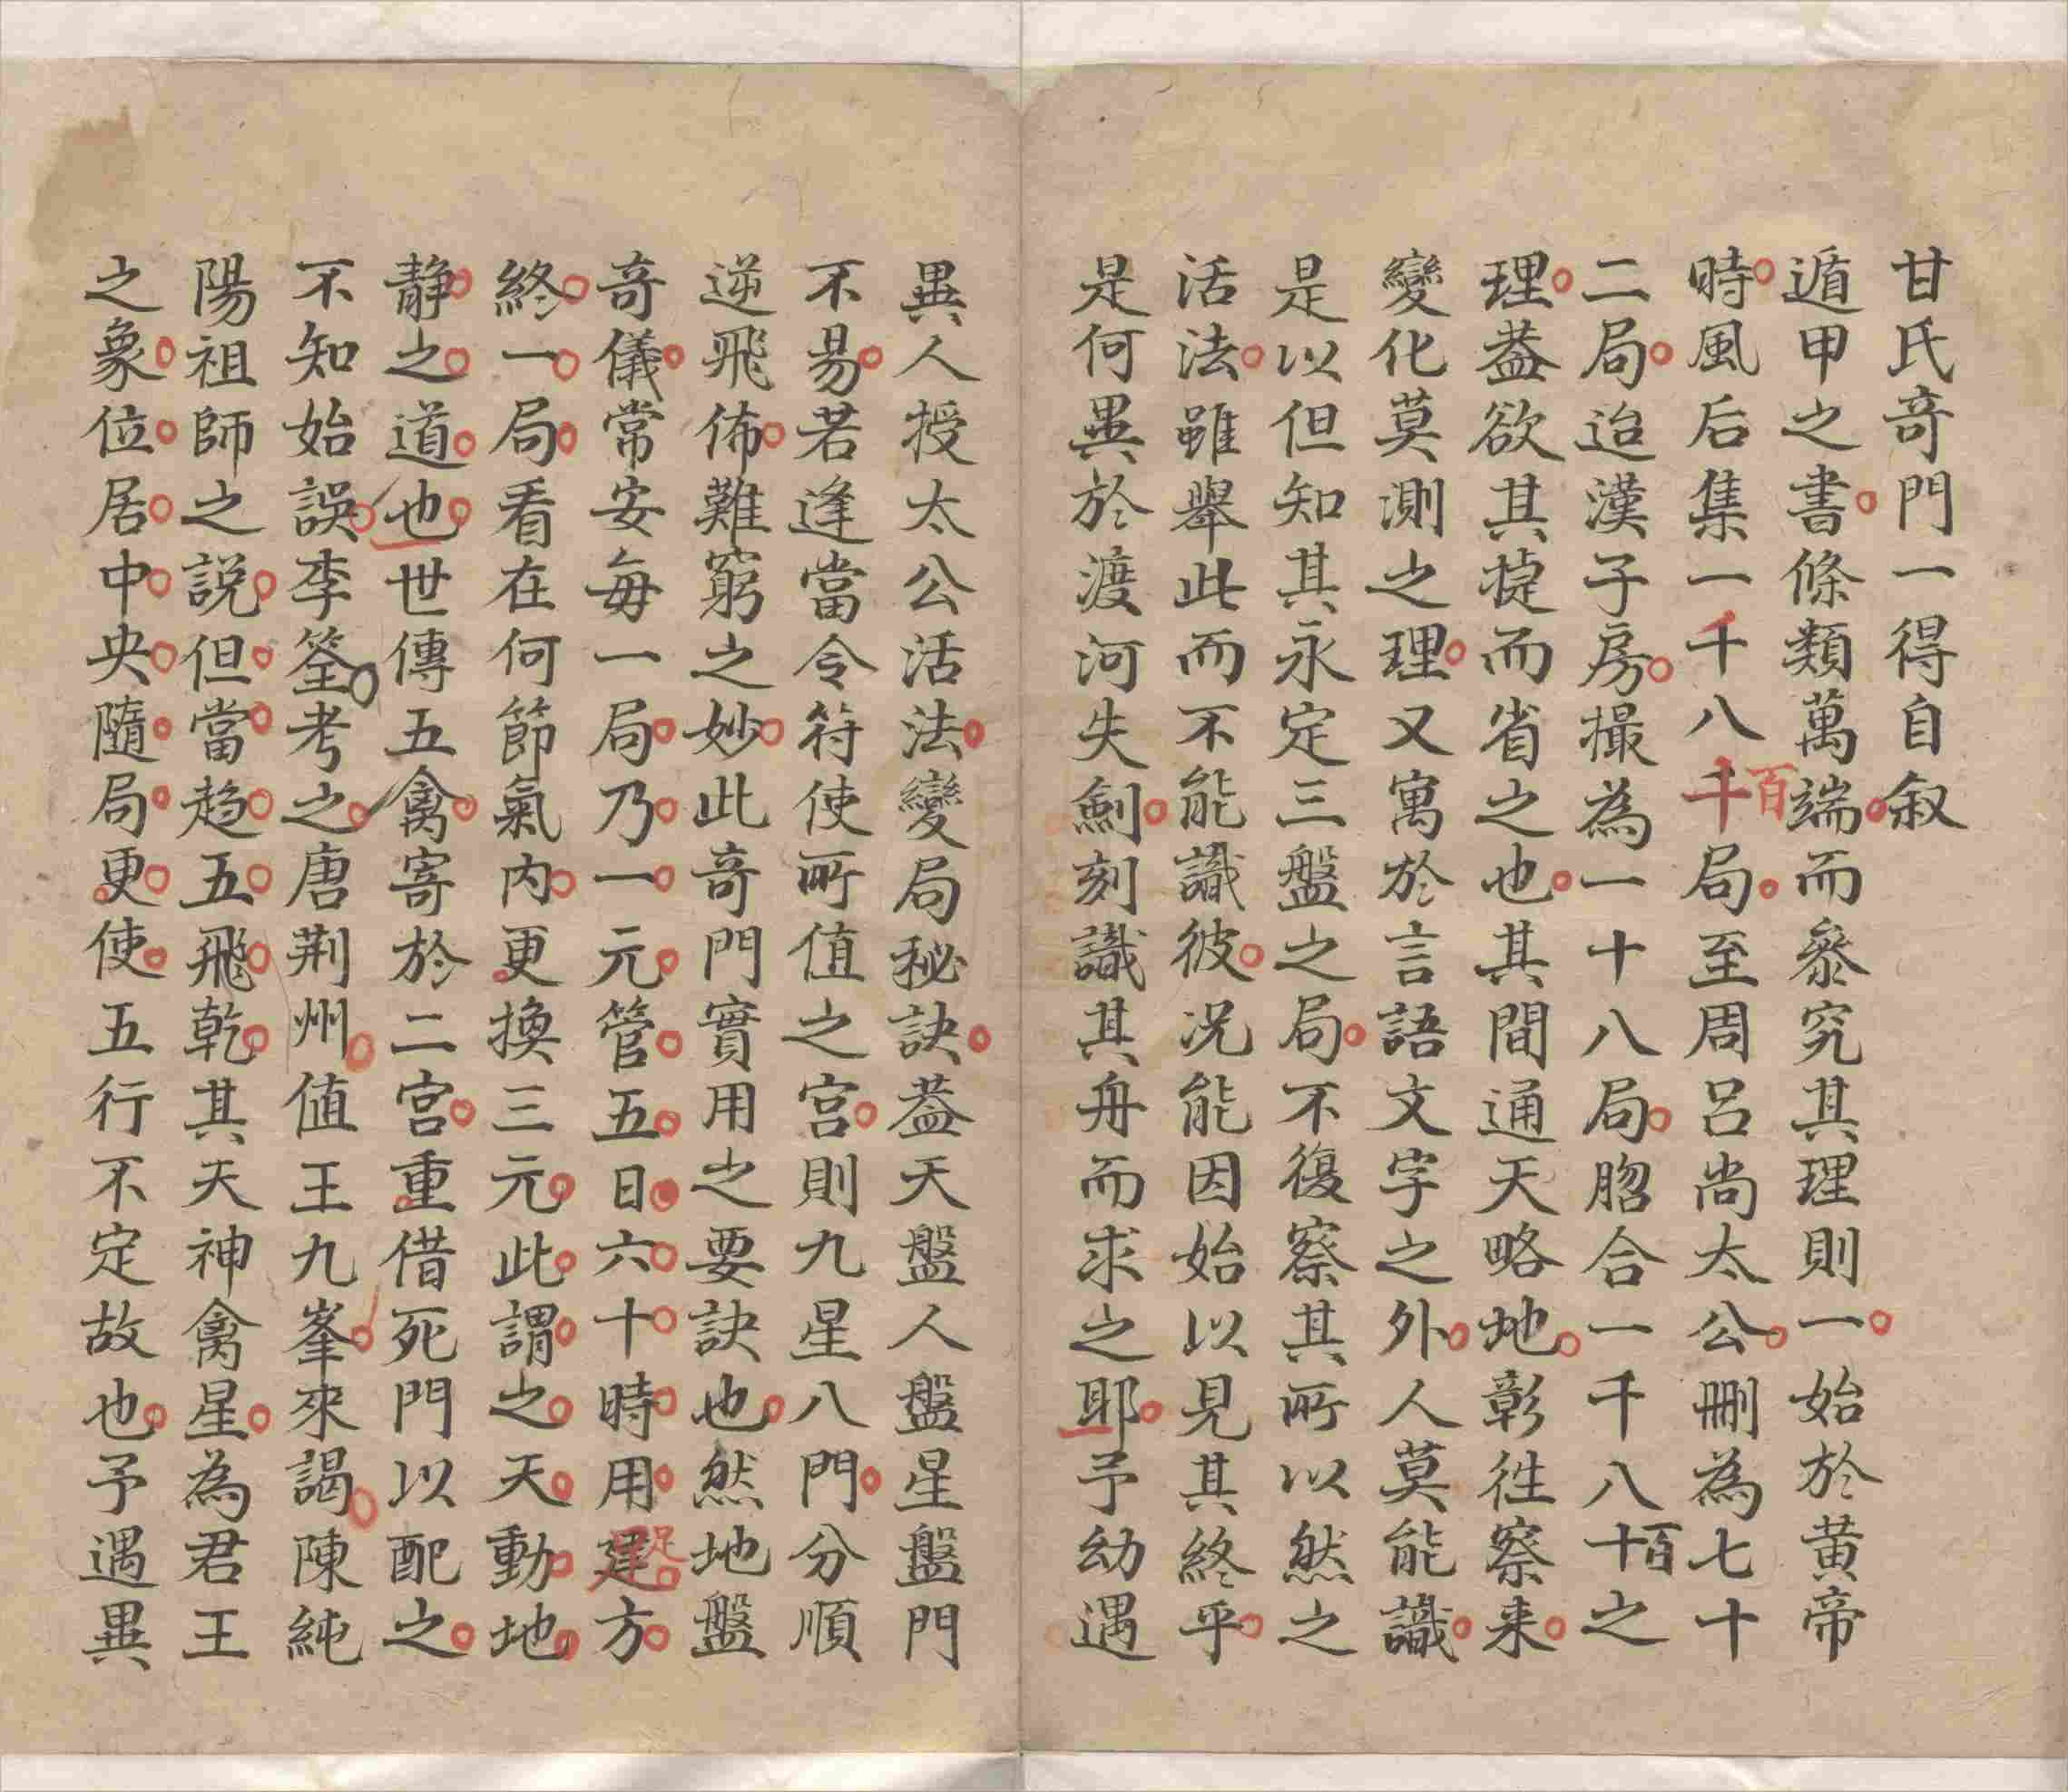 甘氏奇門一得自叙
遁甲之書條類萬端而叅究其理則一始於黄帝
時風后集一千八千百局至周呂尚太公刪為七十
二局迨漢子房撮為一十八局脗合一千八十百之
理葢欲其捷而省之也其間通天略地彰徃察来
變化莫測之理又寓於言語文字之外人莫能識
是以但知其永定三盤之局不復察其所以然之
活法雖舉此而不能識彼况能因始以見其終乎
是何異於渡河失劍刻識其舟而求之耶予幼遇
異人授太公活法變局秘訣葢天盤人盤星盤門
不易若逢當令符使所值之宮則九星八門分順
逆飛佈難窮之妙此奇門實用之要訣也然地盤
奇儀常安每一局乃一元管五日六十時用建方
終一局看在何節氣内更換三元此謂之天動地
静之道也世傳五禽寄於二宮重借死門以配之
不知始誤李筌考之唐荆州値王九峯來謁陳純
陽祖師之説但當趋五飛乾其天神禽星為君王
之象位居中央隨局更使五行不定故也予遇異